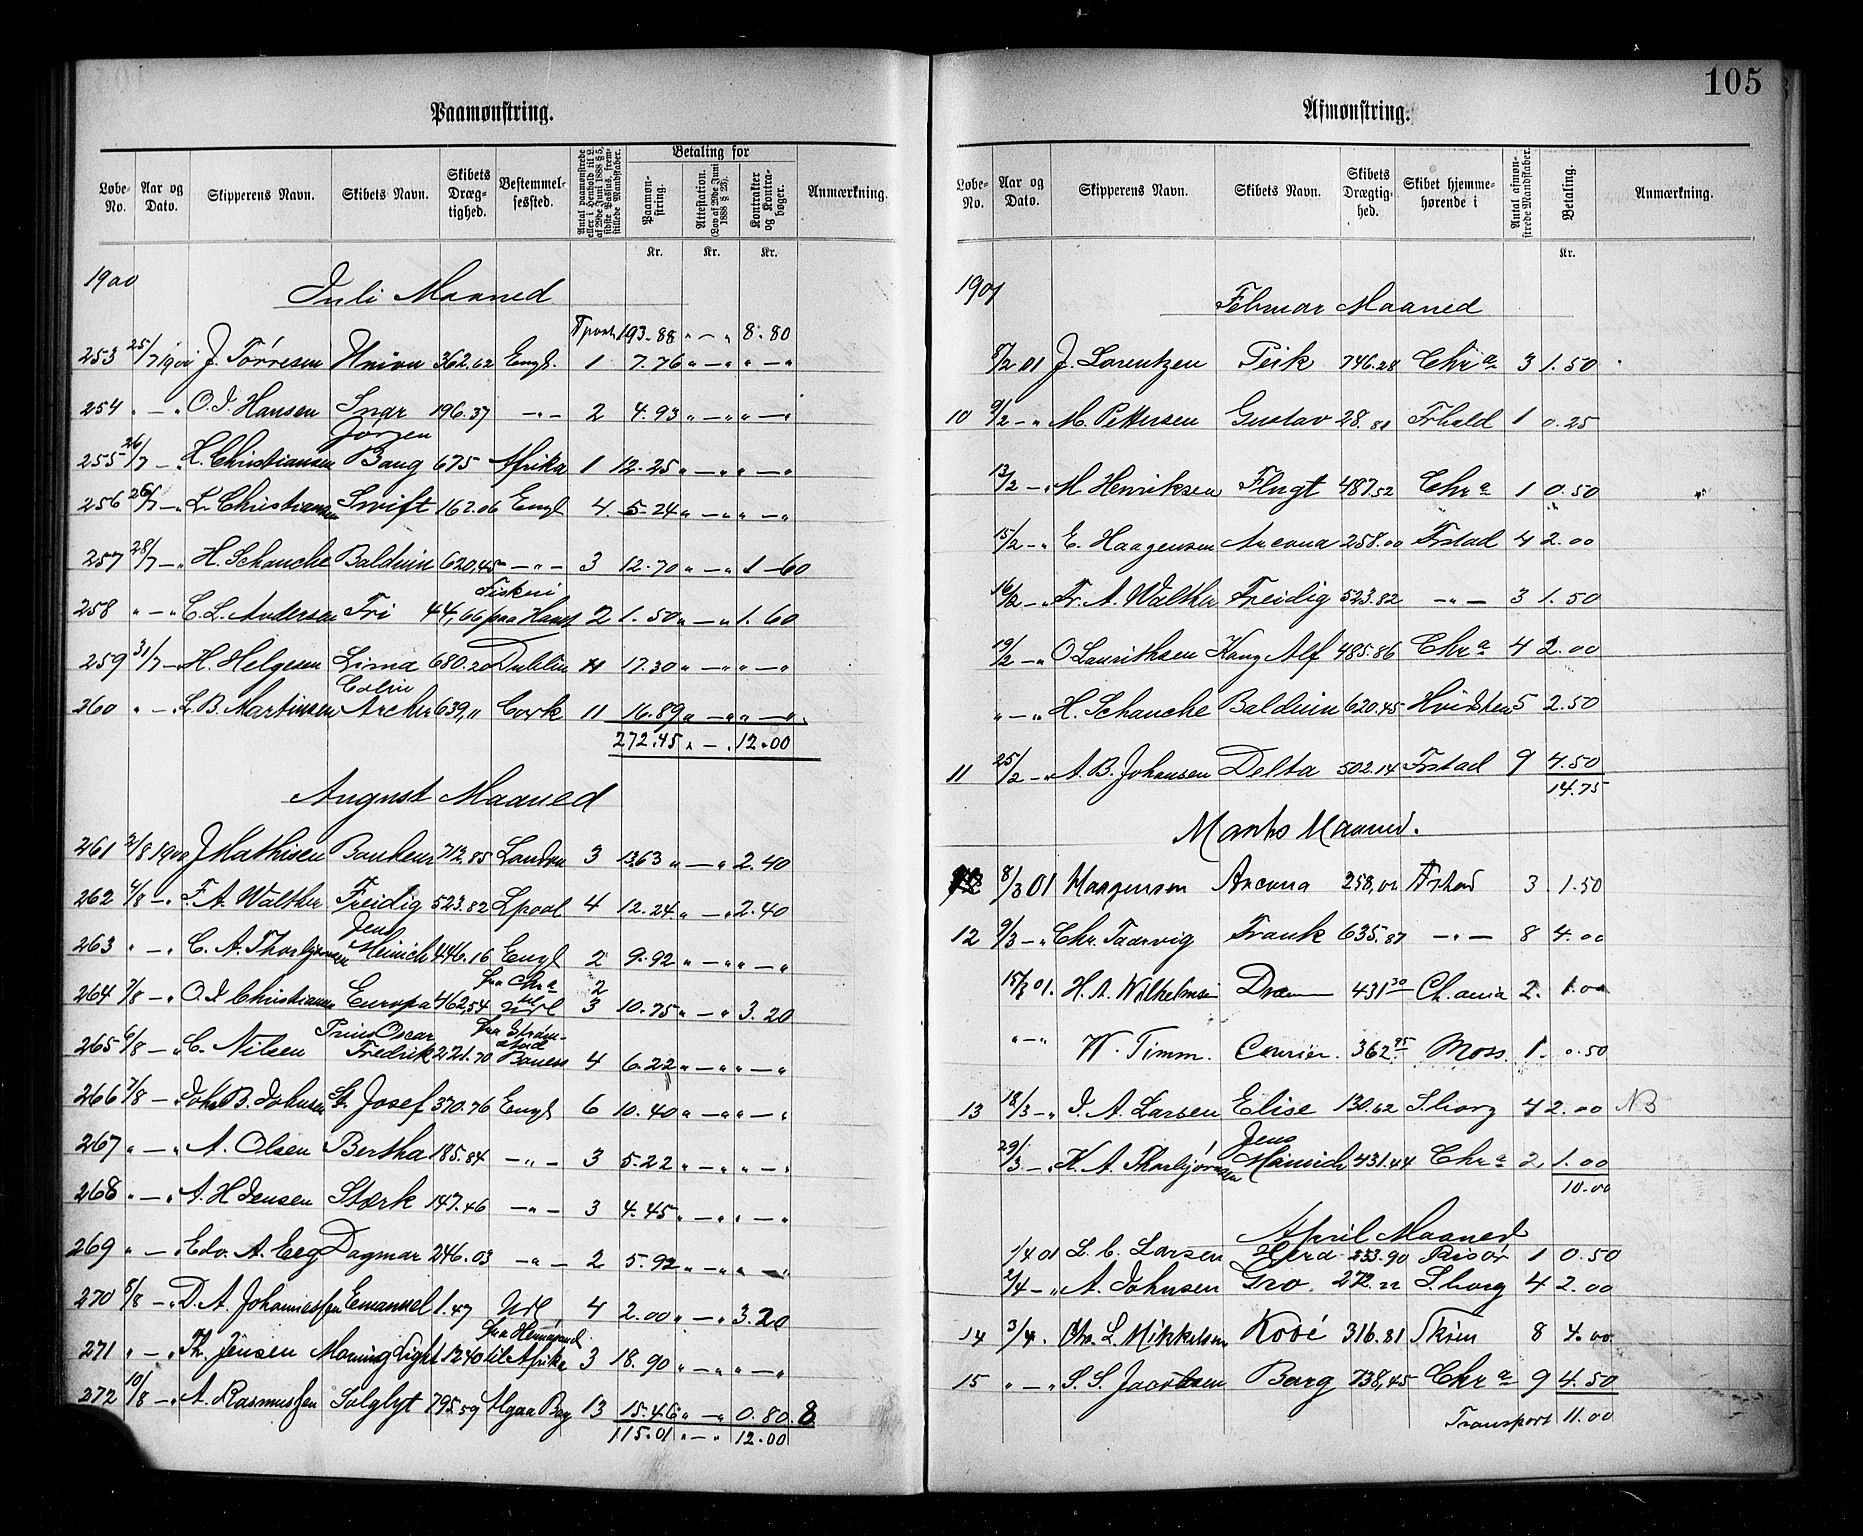 105
Paamønstring.
Løbe-No. Aar og Dato. Skipperens Navn. Skibets Navn. Skibets Drægtighed. Bestemmelsessted. Antal paamønstrede eller i Henhold til L. af 29de Juni 1888 § 5, sidste Passus, fremstillede Mandskaber. Betaling for Paamønstring. Attestation. (Lov af 29de Juni 1888 § 23). Kontrakter og Kontrabøger. Anmærkning.
Kr. Kr. Kr.
1900 Juli Maaned
Tport. 193.88 „ — „ 8.80
253 25/7 1900 J. Tørresen Union 362.62 Engl. 1 7.76 „ — „ „ — „
254 „ — „ O. I. Hansen Snar 196.37 — „ — 2 4.93 „ — „ „ — „
255 26/7 — „ H. Christiansen Jørgen Bang 675 Afrika 1 12.25 „ — „ „ — „
256 26/7 — „ L. Christiansen Swift 162.06 Engl 4. 5.24 „ — „ „ — „
257 28/7 — „ H. Schanche Baldwin 620,45 — „ — 3 12.70 „ — „ 1 — 60
258 „ — „ C. L. Andersen Fri 44,66 Fiskeri paa Havet 2 1.50 „ — „ 1.60
259 31/7 — H. Helgesen Lima 680.20 Dublin 11 17.30 „ — „ „ — „
260 „ — L. B. Martinsen Colin Archer 639,„ Cork 11 16.89 „ — „ „ — „
272.45 „ — „ 12.00
August Maaned
261 2/8 1900 J Mathisen 712.85 London 3 13,63 „ — „ 2.40
262 4/8 — „ F. A. Walther Freidig 523.82 Lpool 4 12.24 „ — „ 2.40
263 „ — „ C. A. Thorbjørnsen Jens Heinrich 446.16 Engl 2 9.92 „ — „ „ — „
264 7/8 — „ O. I. Christiansen Europa 462,54 fra Chr a til Url 2 3 10.75 „ — „ 3.20
265 6/8 — „ C. Nilsen Prins Oscar Fredrik 221.70 fra Strømstad 4 6.22 „ — „ „ — „
266 7/8 — „ Johs B. Johnsen St. Josef 370.76 Engl 6 10.40 „ — „ „ — „
267 „ — „ A. Olsen Bertha 185.84 — „ — 3 5.22 „ — „ „ — „
268 „ — „ A. H Jensen Stærk 147.46 — „ — 3 4.45 „ — „ „ — „
269 „ — „ Edv. A. Eeg Dagmar 246.03 — „ — 2 5.92 „ — „ „ — „
270 8/8 — „ D. A. Johannessen Emanuel 1.47 Url 4 2.00 „ — „ 3.20
271 „ — „ Th. Jensen Morning Light 1240 til Afrika 3 18.90 „ — „ „ — „
272 10/8 — „ A. Rasmussen Solglyt 795.59 Algoa Bay 13 15.46 „ — „ 0.80. 8
115.01 „ — „ 12.00
Afmønstring.
Løbe-No. Aar og Dato. Skipperens Navn. Skibets Navn. Skibets Drægtighed. Skibet hjemmehørende i Antal afmønstrede Mandskaber. Betaling. Anmærkning.
Kr.
1901 Februar Maaned
8/2 01 J. Lorentzen Peik 746.28 Chr a 3 1.50
10 9/2 — „ M. Pettersen Gustav 28.81 Frhald 1 0.25
13/2 — „ M Henriksen Flugt 487.52 Chr a 1 0.50
15/2 — „ E. Haagensen Ancona 258.00 Frstad 4 2.00
16/2 — „ Fr. A. Walther Freidig 523.82 — „ — 3 1.50
19/2 — „ O Laurithsen Kong Alf 485.86 Chr a 4 2.00
„ — „ H. Schanche Baldwin 620.45 Hvidsten 5 2.50
11 25/2 — „ A. B. Johansen Delta 502.14 Frstad 9 4.50
14.75
Marts Maaned.
8/3 01 Haagensen Ancona 258,00 Frstad 3 1.50
12 9/3 — „ Chr. Tadervig Frank 635.87 — „ — 8 4.00
15/3 01. H. A. Wilhelmsen 431.30 Ch.ania 2. 1.00
„ — „ W. Timm. Courier. 362.95 Moss 1. 0.50
13 18/3 — „ I. A. Larsen Elise 130.62 S.borg 4 2.00 NB
29/3 — „ K. A. Thorbjørnsen Jens Heinrich 431.44 Chr a 2 1.00
10.00
April Maaned
1/4 01 L. C. Larsen 253.90 Risør 1 0.50
2/4 — „ A. Johnsen Gro. 272.22 S.borg 4 2.00
14 3/4. Chr. L. Mikkelsen Kobé 316.81 Skien 8 4.00
15 „ — „ S. S. Jacobsen Borg 738,45 Chr a 9 4.50
Transport 11.00